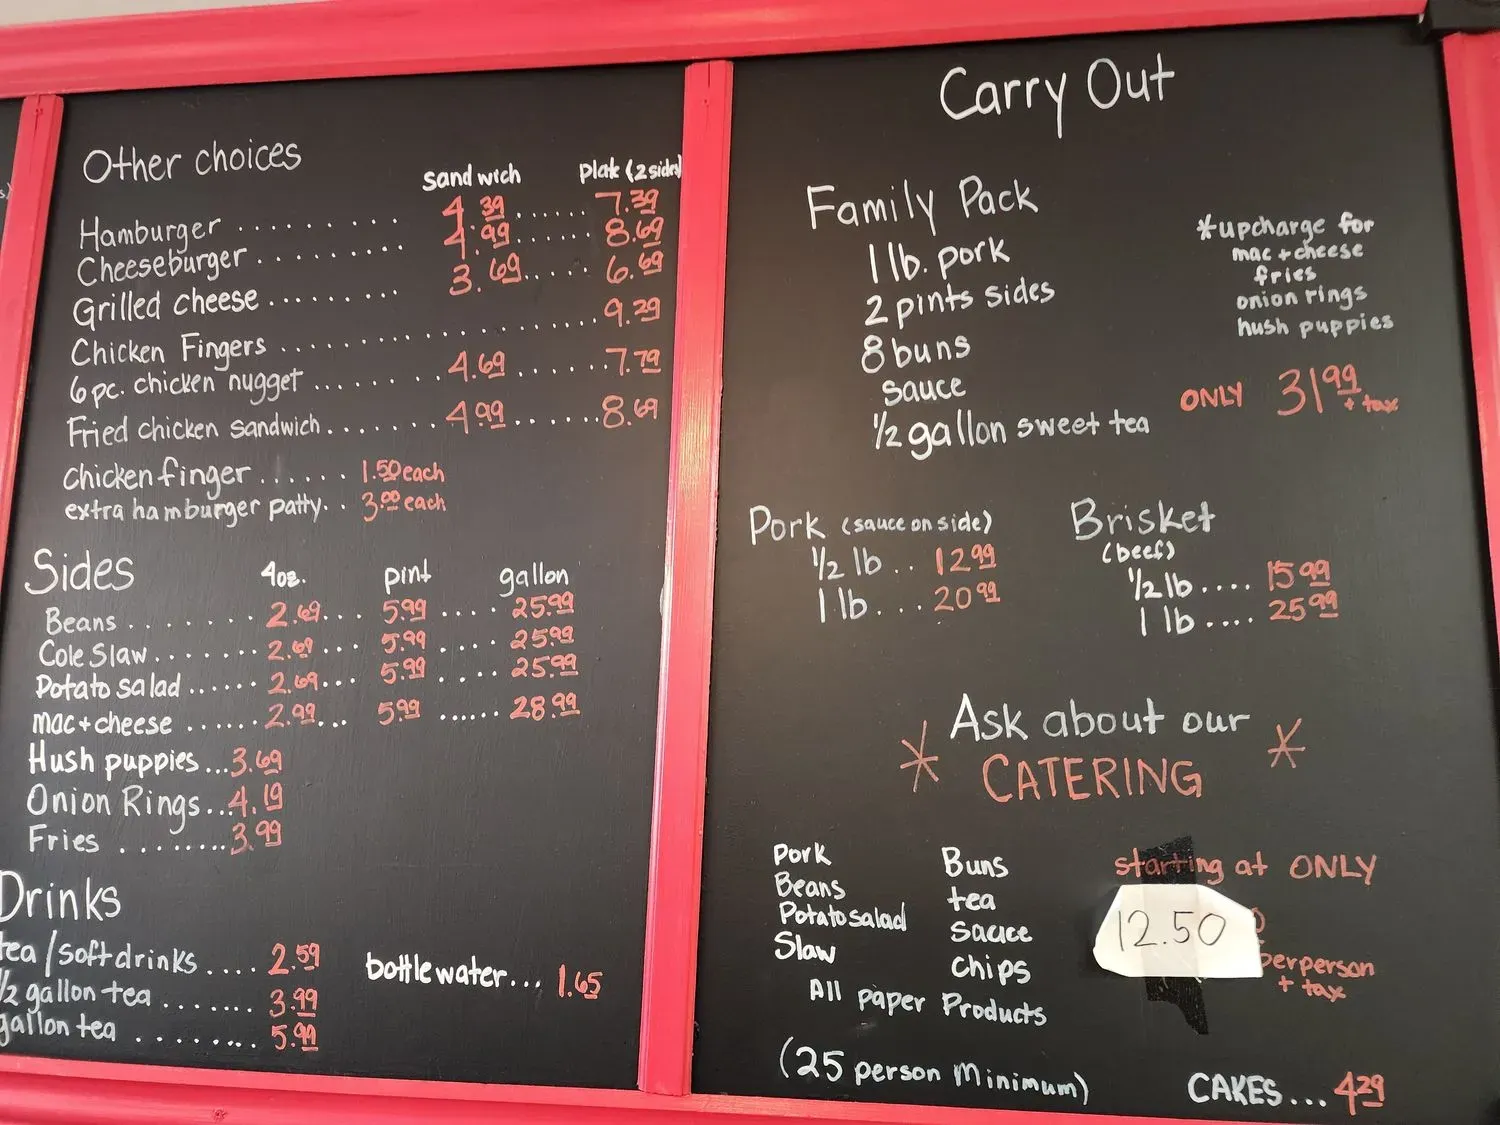 Other choices
sandwich plate (2 sides)
Hamburger ......... 4.39 ...... 7.39
Cheeseburger ......... 4.99 ...... 8.69
Grilled cheese ........ 3.69 ..... 6.69
Chicken Fingers .................. 9.29
6 pc. chicken nugget ........ 4.69 ....... 7.79
Fried chicken sandwich ....... 4.99 ...... 8.69
chicken finger ...... 1.50 each
extra hamburger patty.. 3.00 each
Sides 4oz. pint gallon
Beans ........ 2.69 ... 5.99 .... 25.99
Cole Slaw ....... 2.69 ... 5.99 .... 25.99
Potato salad ...... 2.69 ... 5.99 .... 25.99
mac + cheese ...... 2.99 ... 5.99 ...... 28.99
Hush puppies ... 3.69
Onion Rings ... 4.19
Fries ........ 3.99
Drinks
tea / soft drinks .... 2.59
1/2 gallon tea ....... 3.99
gallon tea ........ 5.99
bottle water ... 1.65
Carry Out
Family Pack
1 lb. pork
2 pints sides
8 buns
sauce
1/2 gallon sweet tea
*upcharge for
mac + cheese
fries
onion rings
hush puppies
ONLY 31.99
+ tax
Pork (sauce on side)
1/2 lb .. 12.99
1 lb ... 20.99
Brisket
(beef)
1/2 lb .... 15.99
1 lb .... 25.99
* Ask about our *
CATERING
Pork
Beans
Potato salad
Slaw
Buns
tea
sauce
chips
All paper Products
(25 person Minimum)
starting at ONLY
12.50
per person
+ tax
CAKES ... 4.29